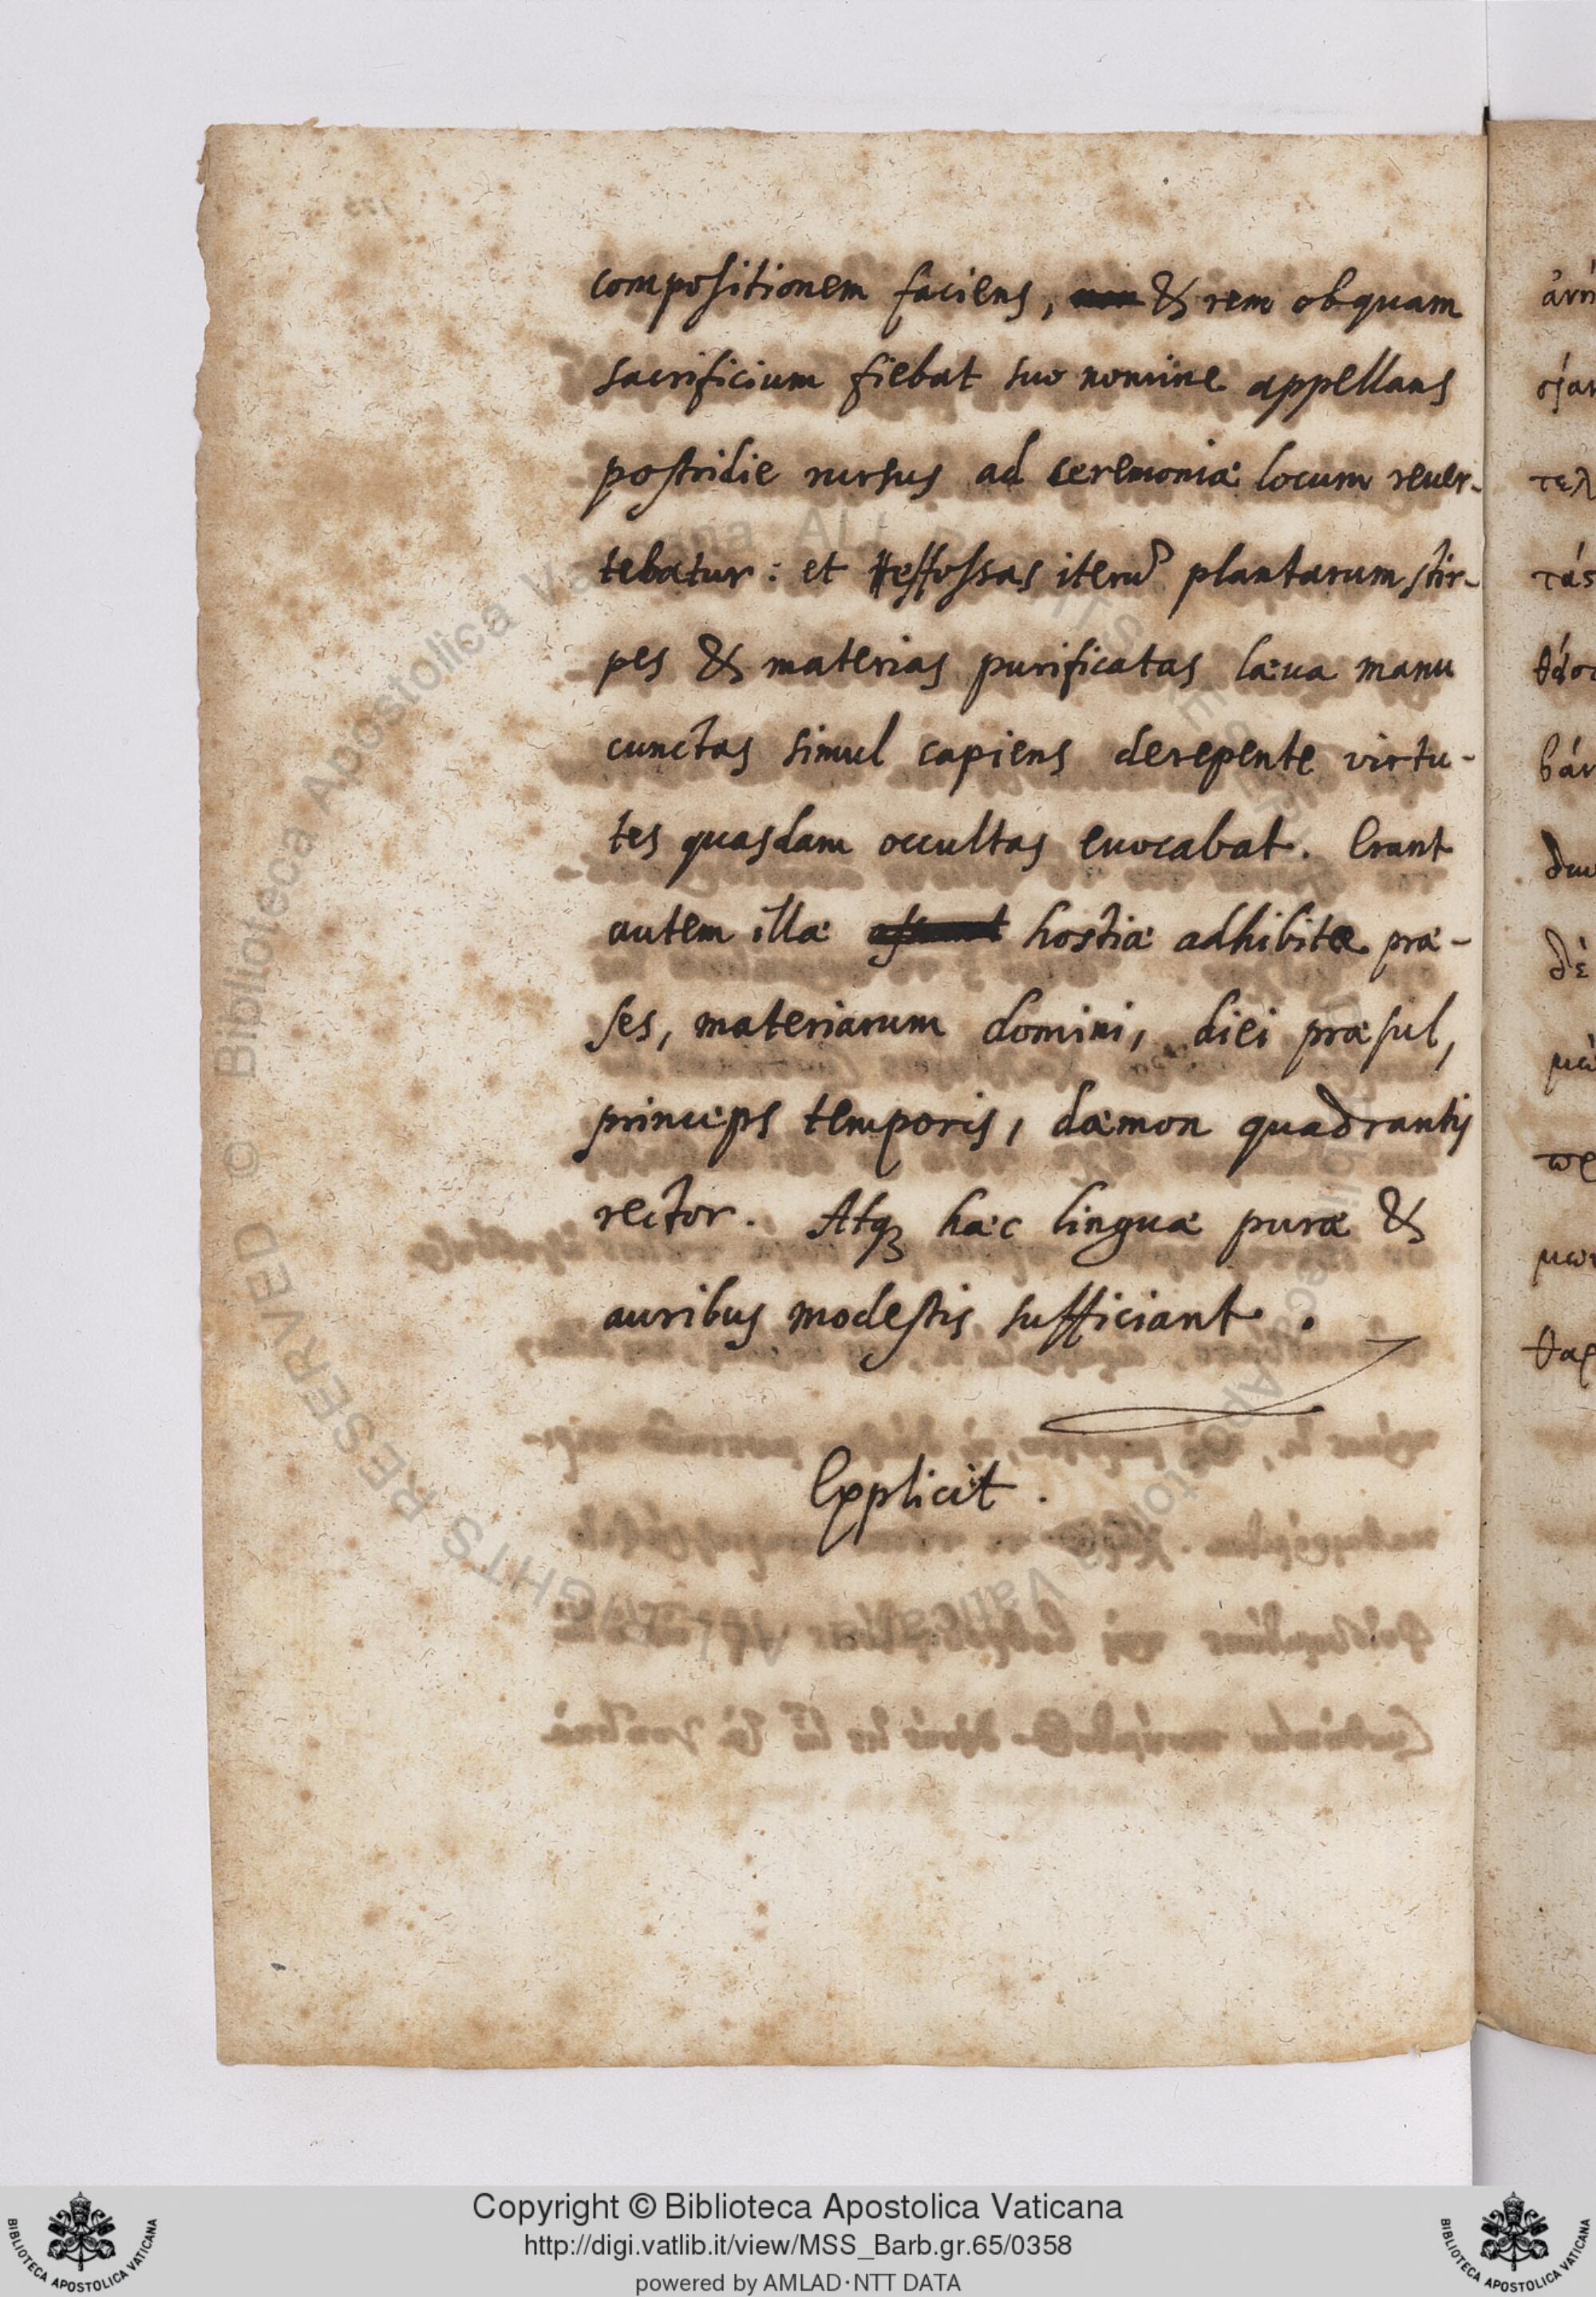 compositionem faciens, & rem ob quam
sacrificium fiebat suo nomine appellans
postridie rursus ad ceremoniæ locum reuer-
tebatur: et effossas iterũ plantarum stir-
pes & materias purificatas læua manu
cunctas simul capiens derepente virtu-
tes quasdam occultas euocabat. Erant
autem illæ hostiæ adhibitæ præ-
ses, materiarum domini, diei præsul,
princeps temporis, dæmon quadrantis
rector. Atqꝫ hæc linguæ puræ &
auribus modestis sufficiant.
Explicit.
τελ
τάς
δὲ
Copyright © Biblioteca Apostolica Vaticana
http://digi.vatlib.it/view/MSS_Barb.gr.65/0358
powered by AMLAD·NTT DATA
BIBLIOTECA APOSTOLICA VATICANA
BIBLIOTECA APOSTOLICA VATICANA